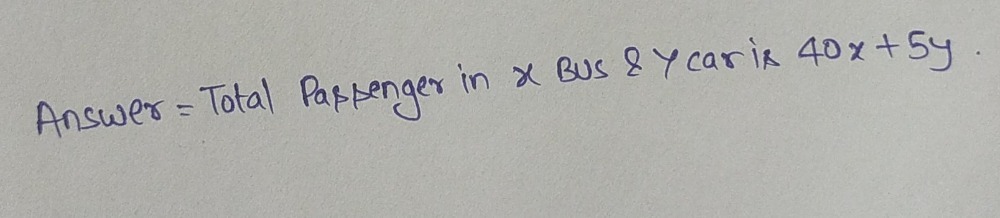 Answer = Total Passenger in x Bus & y car is 40x + 5y .